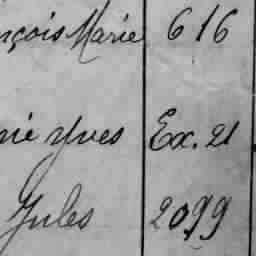 nçois Marie 616
nie Yves Ex. 21
Jules 2099